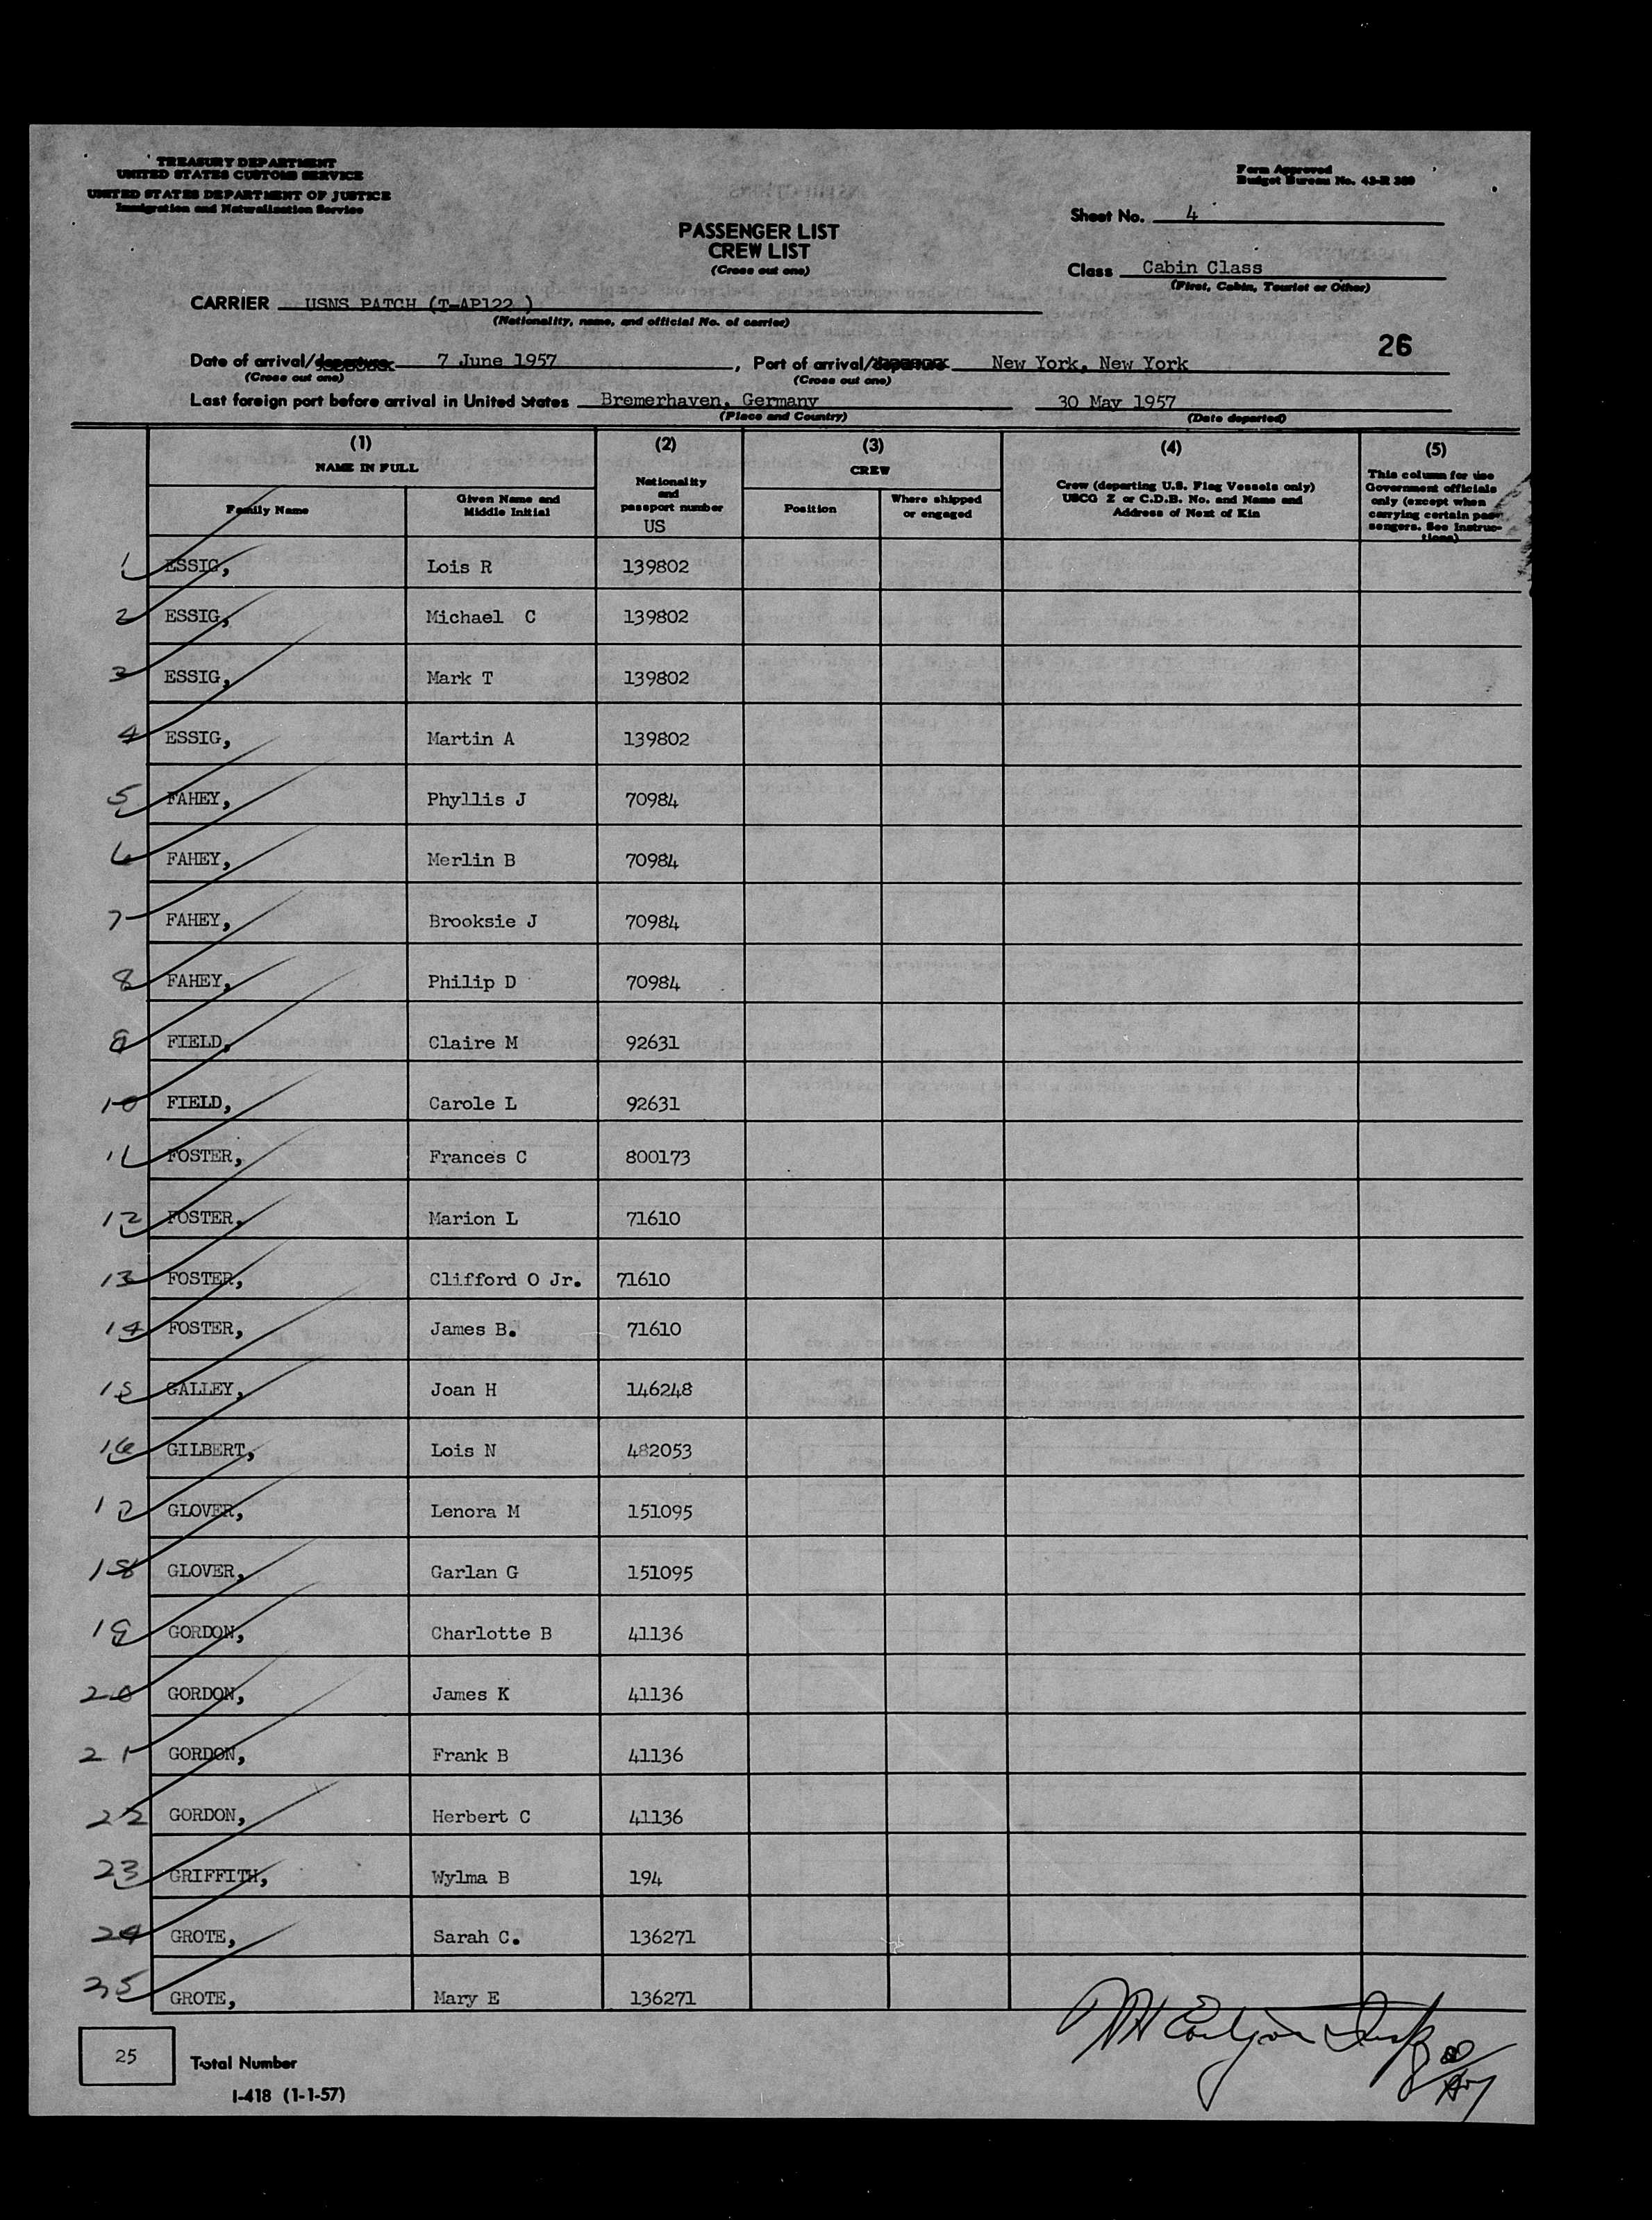 TREASURY DEPARTMENT
UNITED STATES CUSTOMS SERVICE
UNITED STATES DEPARTMENT OF JUSTICE
Immigration and Naturalization Service
Form Approved
Budget Bureau No. 43-R 380
Sheet No. 4
PASSENGER LIST
CREW LIST
(Cross out one)
Class Cabin Class
(First, Cabin, Tourist or Other)
CARRIER USNS PATCH (T-AP122 )
(Nationality, name, and official No. of carrier)
26
Date of arrival/departure 7 June 1957, Port of arrival/departure New York, New York
(Cross out one) (Cross out one)
Last foreign port before arrival in United States Bremerhaven, Germany 30 May 1957
(Place and Country) (Date departed)
(1) (2) (3) (4) (5)
NAME IN FULL
Family Name
Given Name and
Middle Initial
Nationality
and
passport number
US
CREW
Position
Where shipped
or engaged
Crew (departing U.S. Flag Vessels only)
USCG Z or C.D.B. No. and Name and
Address of Next of Kin
This column for use
Government officials
only (except when
carrying certain pas-
sengers. See Instruc-
tions)
1 ESSIG, Lois R 139802
2 ESSIG, Michael C 139802
3 ESSIG, Mark T 139802
4 ESSIG, Martin A 139802
5 FAHEY, Phyllis J 70984
6 FAHEY, Merlin B 70984
7 FAHEY, Brooksie J 70984
8 FAHEY, Philip D 70984
9 FIELD, Claire M 92631
10 FIELD, Carole L 92631
11 FOSTER, Frances C 800173
12 FOSTER, Marion L 71610
13 FOSTER, Clifford O Jr. 71610
14 FOSTER, James B. 71610
15 GALLEY, Joan H 146248
16 GILBERT, Lois N 482053
17 GLOVER, Lenora M 151095
18 GLOVER, Garlan G 151095
19 GORDON, Charlotte B 41136
20 GORDON, James K 41136
21 GORDON, Frank B 41136
22 GORDON, Herbert C 41136
23 GRIFFITH, Wylma B 194
24 GROTE, Sarah C. 136271
25 GROTE, Mary E 136271
25 Total Number
I-418 (1-1-57)